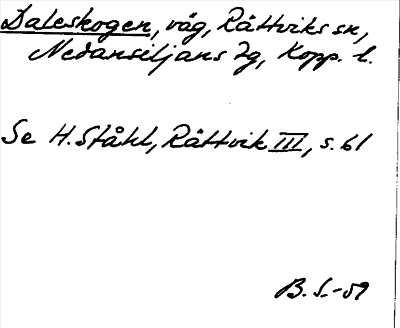 Daleskogen, väg, Rättviks sn,
Nedansiljans tg, Kopp. l.
Se H. Ståhl, Rättvik III, s. 61
B. S.-59